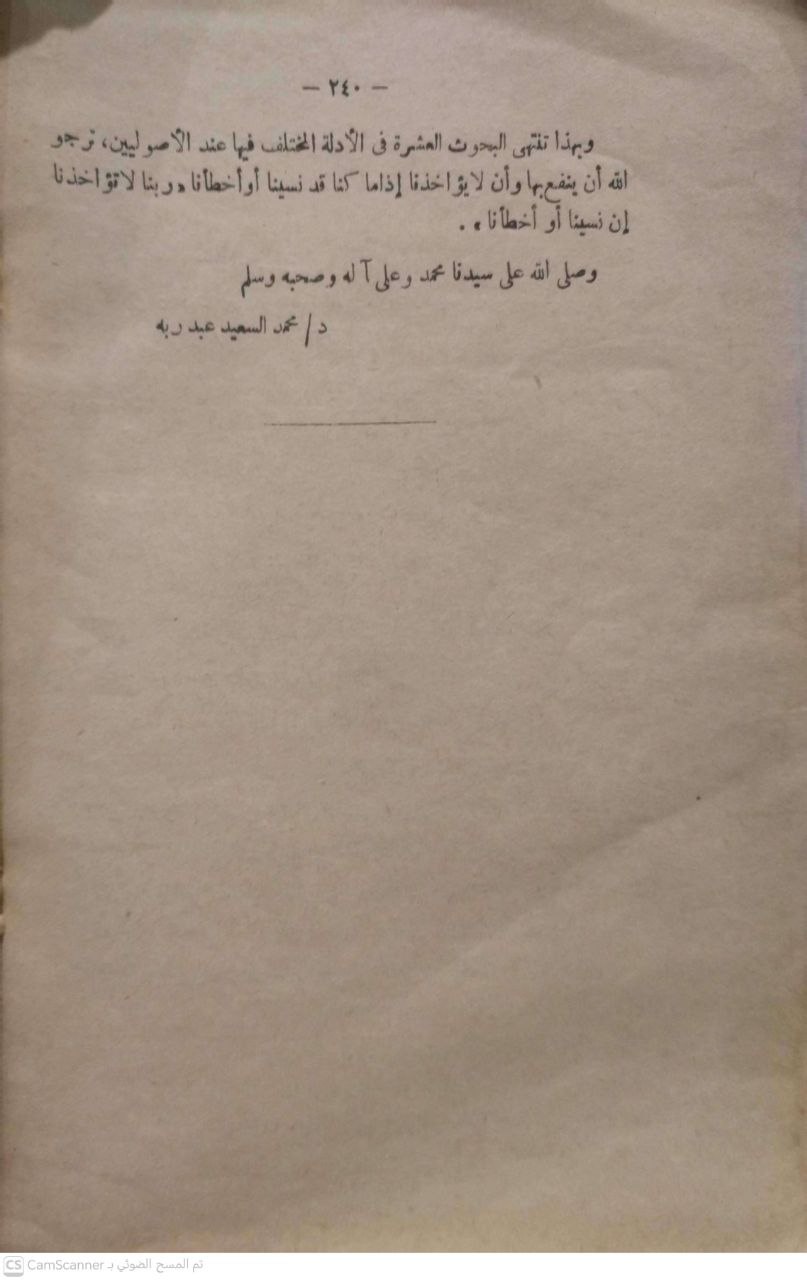 — ٢٤٠ —
وبهذا تنتهى البحوث العشرة فى الأدلة المختلف فيها عند الأصوليين، نرجو
الله أن ينفع بها وأن لا يؤاخذنا إذا ما كنا قد نسينا أو أخطأنا « ربنا لا تؤاخذنا
إن نسينا أو أخطأنا » .
وصلى الله على سيدنا محمد وعلى آله وصحبه وسلم
د / محمد السعيد عبد ربه
CS CamScanner تم المسح الضوئي بـ